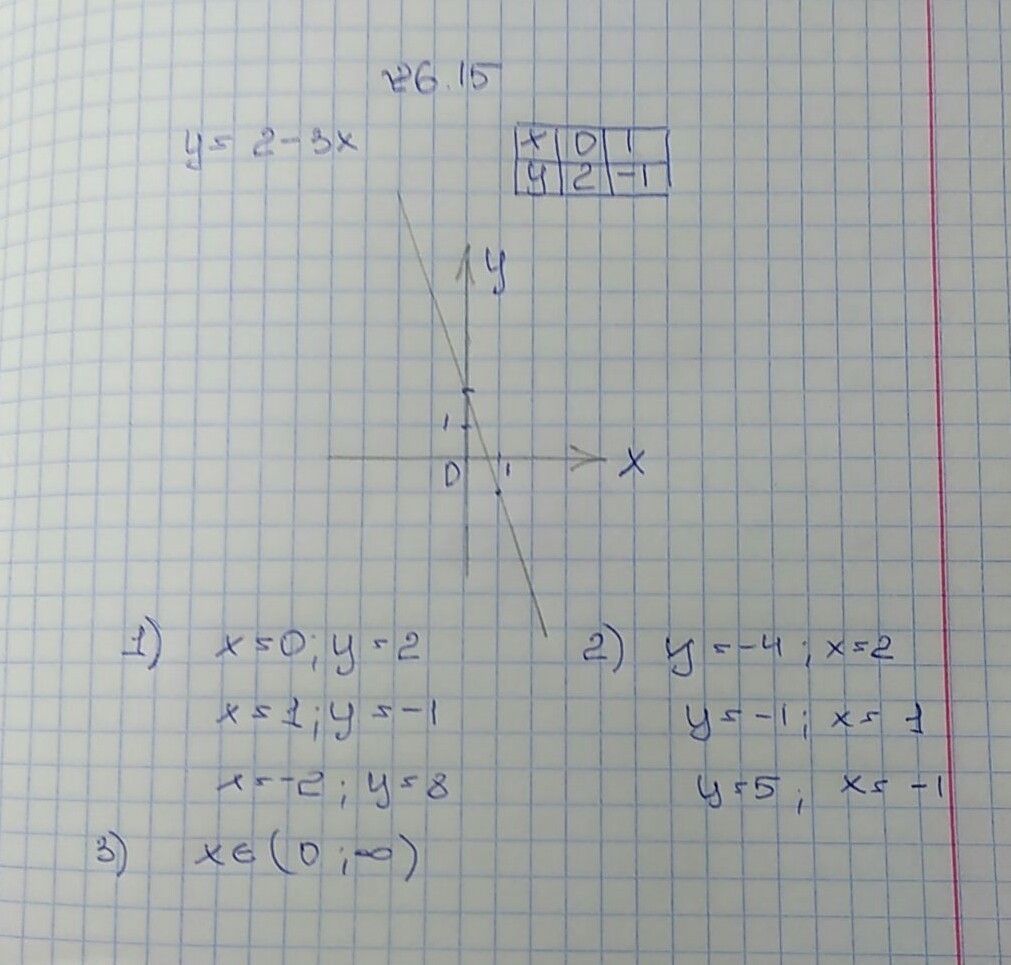 26.15
y = 2 - 3x
x 0 1
y 2 -1
y
1
0 1 x
1) x = 0; y = 2
x = 1; y = -1
x = -2; y = 8
2) y = -4; x = 2
y = -1; x = 1
y = 5; x = -1
3) x ∈ (0; ∞)